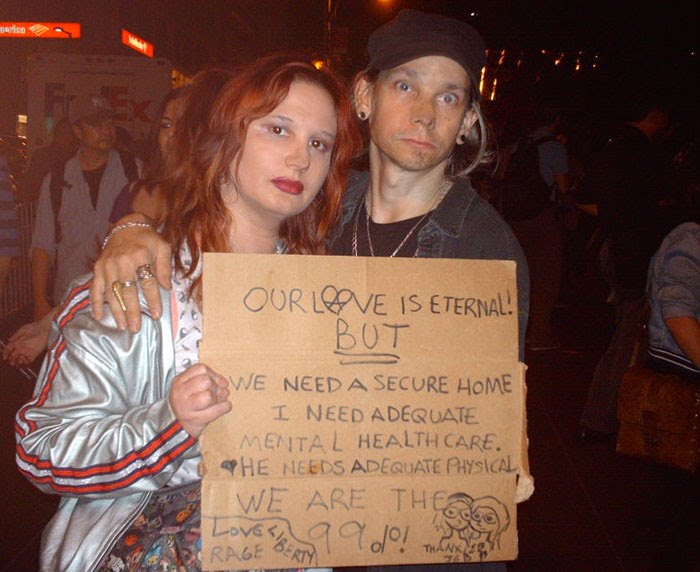 FedEx
OUR LOVE IS ETERNAL!
BUT
WE NEED A SECURE HOME
I NEED ADEQUATE
MENTAL HEALTHCARE.
HE NEEDS ADEQUATE PHYSICAL
WE ARE THE
99%!
LOVE LIBERTY
RAGE
THANX